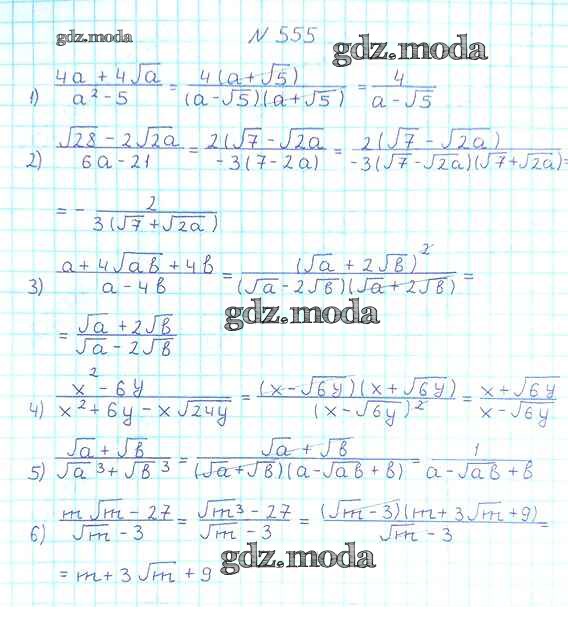 gdz.moda
N 555
gdz.moda
1) (4a + 4√a)/(a² - 5) = (4(a + √5))/((a - √5)(a + √5)) = 4/(a - √5)
2) (√28 - 2√2a)/(6a - 21) = (2(√7 - √2a)/(-3(7 - 2a)) = (2(√7 - √2a))/(-3(√7 - √2a)(√7 + √2a)) =
= - 2/(3(√7 + √2a))
3) (a + 4√ab + 4b)/(a - 4b) = (√a + 2√b)²/((√a - 2√b)(√a + 2√b)) =
gdz.moda
= (√a + 2√b)/(√a - 2√b)
4) (x² - 6y)/(x² + 6y - x√24y) = ((x - √6y)(x + √6y))/(x - √6y)² = (x + √6y)/(x - √6y)
5) (√a + √b)/(√a³ + √b³) = (√a + √b)/((√a + √b)(a - √ab + b)) = 1/(a - √ab + b)
6) (m√m - 27)/(√m - 3) = (√m³ - 27)/(√m - 3) = ((√m - 3)(m + 3√m + 9))/(√m - 3) =
gdz.moda
= m + 3√m + 9